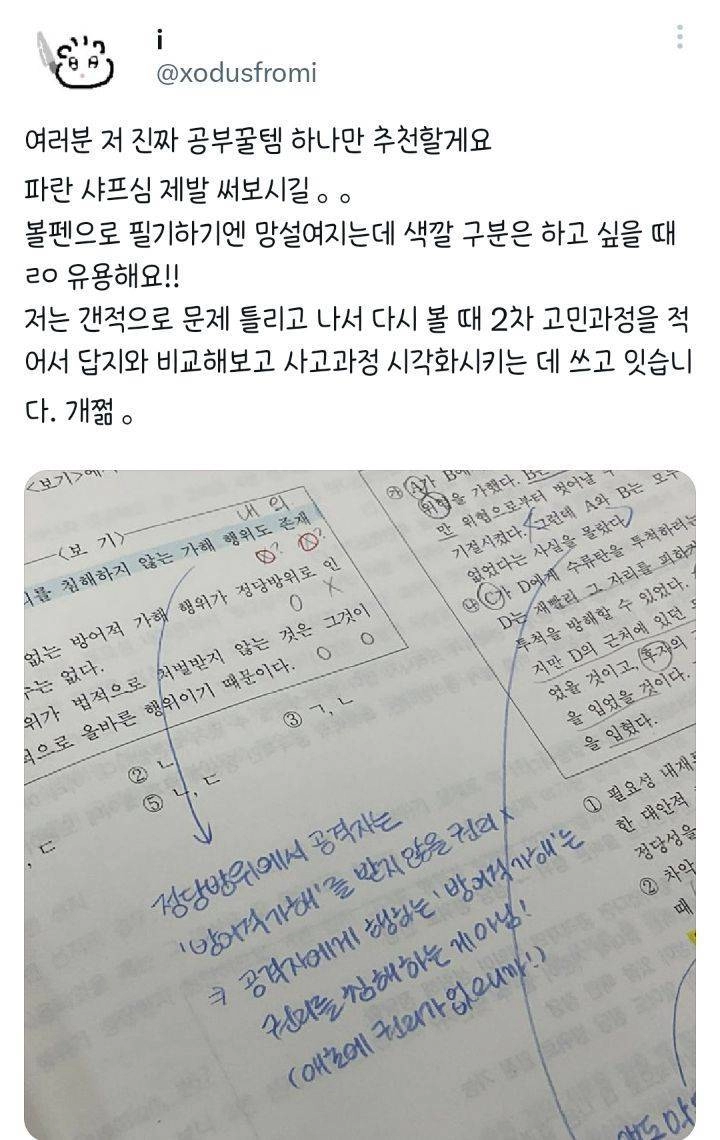 i
@xodusfromi
여러분 저 진짜 공부꿀템 하나만 추천할게요
파란 샤프심 제발 써보시길 。。
볼펜으로 필기하기엔 망설여지는데 색깔 구분은 하고 싶을 때
ㄹㅇ 유용해요!!
저는 갠적으로 문제 틀리고 나서 다시 볼 때 2차 고민과정을 적
어서 답지와 비교해보고 사고과정 시각화시키는 데 쓰고 잇습니
다. 개쩖 。
<보기>에
<보 기>
내 의
리를 침해하지 않는 가해 행위도 존재
X? X?
없는 방어적 가해 행위가 정당방위로 인
수는 없다. O X
위가 법적으로 처벌받지 않는 것은 그것이
적으로 올바른 행위이기 때문이다. O O
② ㄴ
③ ㄱ, ㄴ
, ㄷ
⑤ ㄴ, ㄷ
정당방위에서 공격자는
'방어적 가해'를 받지 않을 권리 x
→ 공격자에게 행하는 '방어적 가해'는
권리를 침해하는 게 아님!
(애초에 권리가 없으니까!)
㉮ A가 B에
위협을 가했다. B는
만 위험으로부터 벗어날 수
기절시켰다. 그런데 A와 B는 모두
없었다는 사실을 몰랐다.
㉯ C가 D에게 수류탄을 투척하려는
D는 재빨리 그 자리를 피하거
투척을 방해할 수 있었다.
지만 D의 근처에 있던
었을 것이고, 후자의
을 입었을 것이다.
을 입혔다.
① 필요성 내재
한 대안적
정당성을
② 차악
때